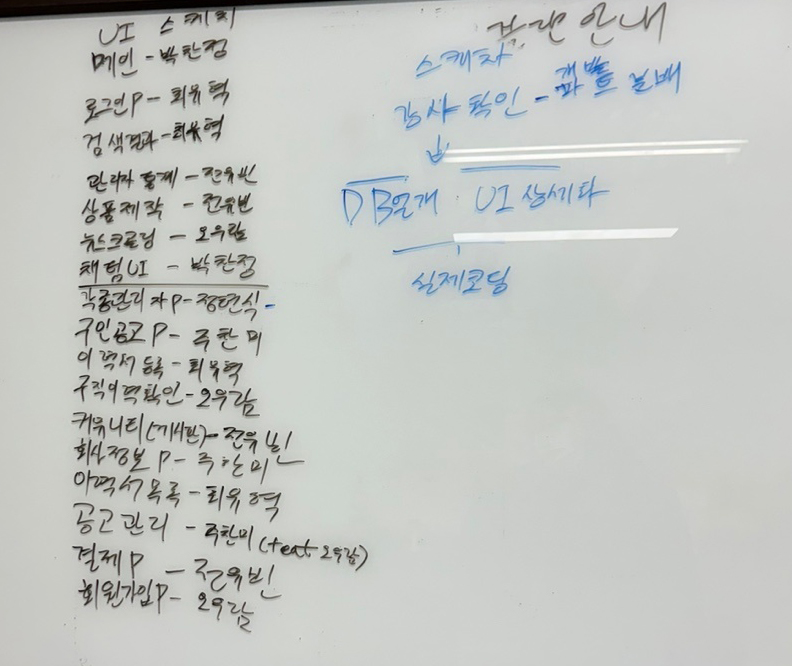 UI 스케치
메인 - 박찬정
로그인P - 최유혁
검색결과 - 최유혁
관리자 통계 - 전유빈
상품제작 - 전유빈
뉴스크롤링 - 오우람
채팅UI - 박찬정
각종관리자P - 정현식 -
구인공고 P - 주한미
이력서 등록 - 최유혁
구직이력확인 - 오우람
커뮤니티(게시판) - 전유빈
회사정보 P - 주한미
이력서 목록 - 최유혁
공고관리 - 주한미 (feat 오우람)
결제P - 전유빈
회원가입P - 오우람
안내
스케치
강사 확인 - 개발 파트 분배
DB설계 UI 상세화
실제코딩